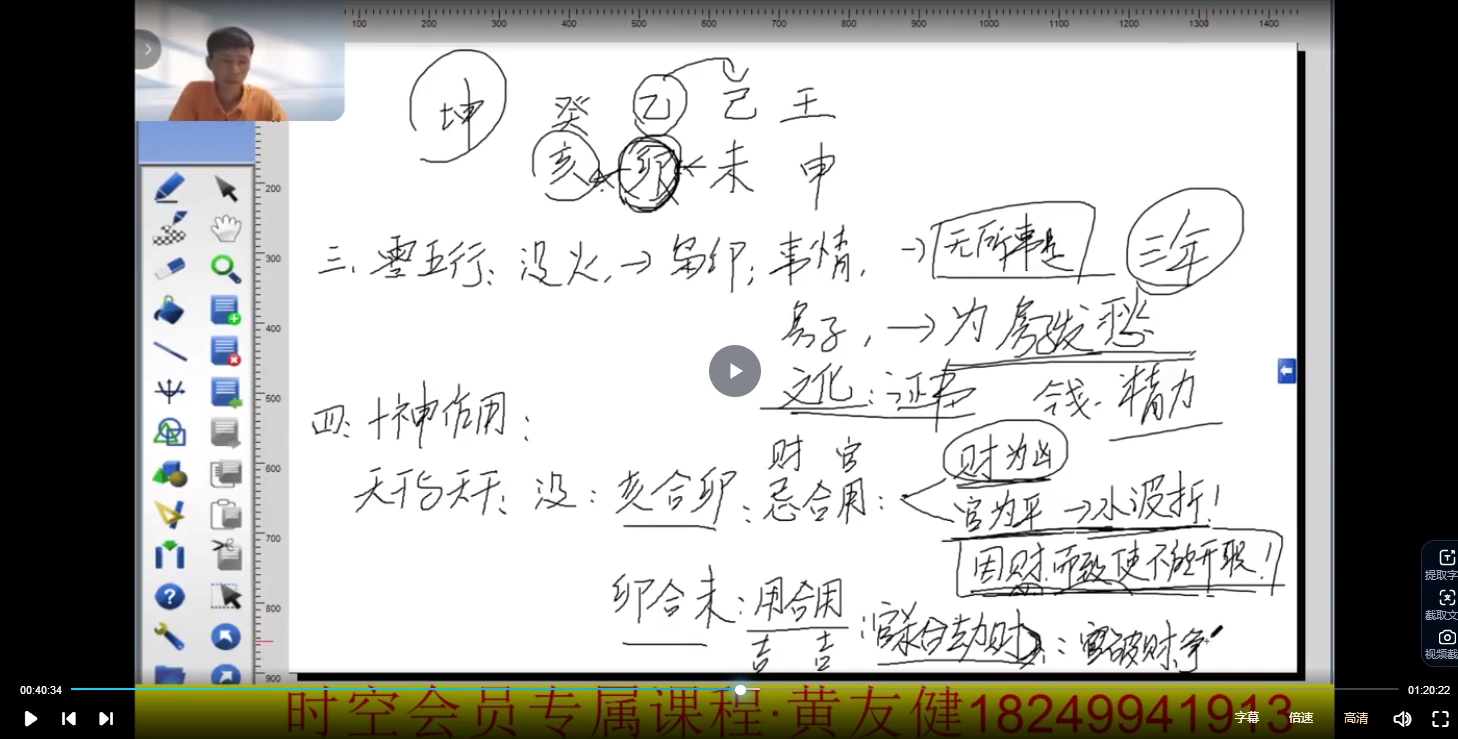 100 200 300 400 500 600 700 800 900 1000 1100 1200 1300 1400
坤 癸 乙 己 壬
亥 卯 未 申
200
300
400
500
600
700
800
900
三、零五行：没火，→ 枭印：事情， → 无所事是 三年
房子，→ 为房子发愁
文化：证书 钱·精力
四、十神作用：
财 官 财为凶
天干与天干：没：亥合卯：忌合用： 官为平 → 小波折！
因财而致使不能升职！
卯合未：用合用：官杀合去劫财：官破财,争
吉 吉
提取字
截取文
视频截
00:40:34
01:20:22
时空会员专属课程·黄友健18249941913
字幕 倍速 高清